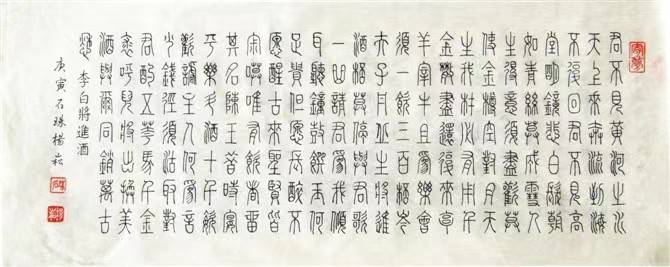 君不見黃河之水
天上來奔流到海
不復回君不見高
堂明鏡悲白髮朝
如青絲暮成雪人
生得意須盡歡莫
使金樽空對月天
生我材必有用千
金散盡還復來烹
羊宰牛且為樂會
須一飲三百杯岑
夫子丹丘生將進
酒杯莫停與君歌
一曲請君為我傾
耳聽鐘鼓饌玉何
足貴但願長醉不
願醒古來聖賢皆
寂寞唯有飲者留
其名陳王昔時宴
平樂斗酒十千恣
歡謔主人何為言
少錢徑須沽取對
君酌五華馬千金
裘呼兒將出換美
酒與爾同銷萬古
愁 李白將進酒
庚寅石珠楊崧